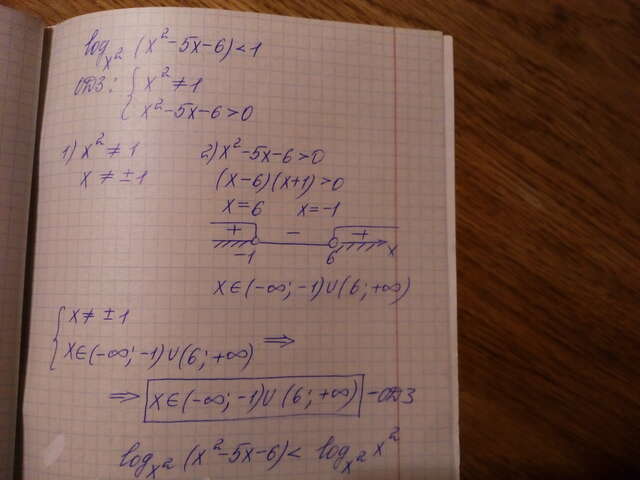 log_{x²} (x²-5x-6)<1
ОДЗ: { x²≠1
x²-5x-6>0
1) x²≠1 2) x²-5x-6>0
x≠±1 (x-6)(x+1)>0
x=6 x=-1
+ - +
-1 6 x
x∈(-∞; -1)∪(6; +∞)
{ x≠±1
x∈(-∞; -1)∪(6; +∞) ⇒
⇒ x∈(-∞; -1)∪(6; +∞) -ОДЗ
log_{x²} (x²-5x-6)< log_{x²} x²